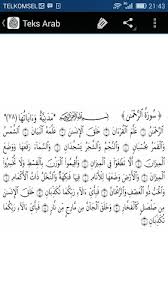 TELKOMSEL 21:43
Teks Arab
﴿ سُورَةُ الرَّحْمَٰنِ ﴾
بِسْمِ اللَّهِ الرَّحْمَٰنِ الرَّحِيمِ
الرَّحْمَٰنُ عَلَّمَ الْقُرْءَانَ خَلَقَ الْإِنسَٰنَ عَلَّمَهُ الْبَيَانَ الشَّمْسُ
وَالْقَمَرُ بِحُسْبَانٍ وَالنَّجْمُ وَالشَّجَرُ يَسْجُدَانِ وَالسَّمَاءَ رَفَعَهَا وَوَضَعَ
الْمِيزَانَ أَلَّا تَطْغَوْا فِي الْمِيزَانِ وَأَقِيمُوا الْوَزْنَ بِالْقِسْطِ وَلَا تُخْسِرُوا
الْمِيزَانَ وَالْأَرْضَ وَضَعَهَا لِلْأَنَامِ فِيهَا فَٰكِهَةٌ وَالنَّخْلُ ذَاتُ الْأَكْمَامِ
وَالْحَبُّ ذُو الْعَصْفِ وَالرَّيْحَانُ فَبِأَيِّ ءَالَاءِ رَبِّكُمَا تُكَذِّبَانِ خَلَقَ الْإِنسَٰنَ
مِن صَلْصَٰلٍ كَالْفَخَّارِ وَخَلَقَ الْجَانَّ مِن مَّارِجٍ مِّن نَّارٍ فَبِأَيِّ ءَالَاءِ رَبِّكُمَا تُكَذِّبَانِ